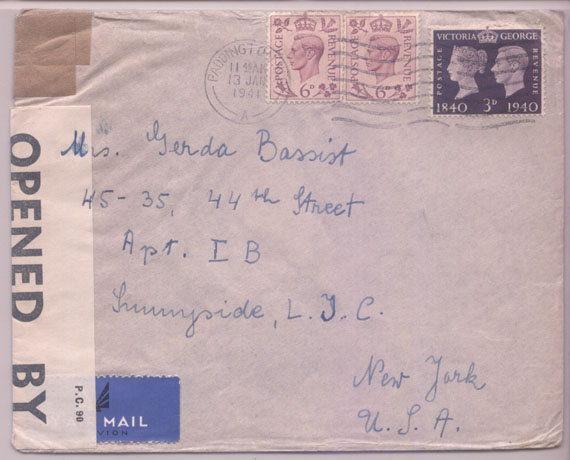 PADDINGTO
11 AM
13 JAN
1941
A
POSTAGE REVENUE
6D
POSTAGE REVENUE
6D
VICTORIA GEORGE
POSTAGE REVENUE
1840 3D 1940
Mrs. Gerda Bassist
45-35, 44th Street
Apt. I B
Sunnyside, L. I. C.
New York
U. S. A.
OPENED BY
P.C. 90
MAIL
VION